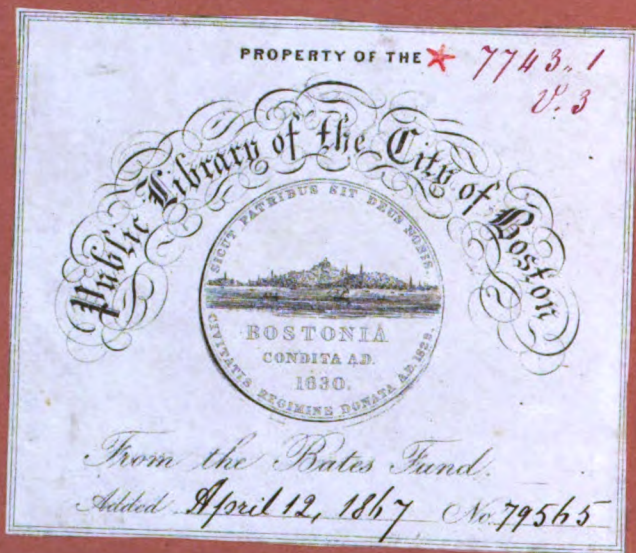 PROPERTY OF THE 7743.1
V. 3
Public Library of the City of Boston
SICUT PATRIBUS SIT DEUS NOBIS.
BOSTONIA
CONDITA A.D.
1630.
CIVITATIS REGIMINE DONATA A.D. 1822.
From the Bates Fund.
Added April 12, 1867 No. 79565